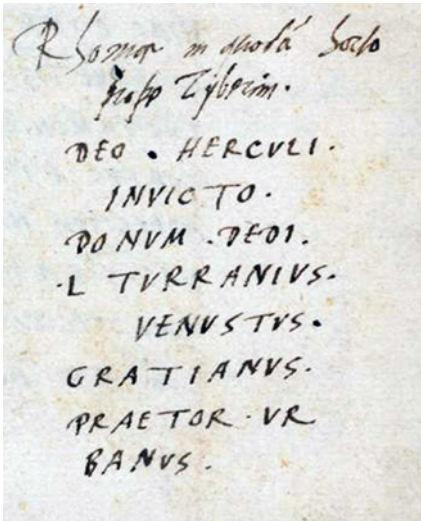 Rhomae in quodā horto
prope Tyberim.
DEO . HERCVLI .
INVICTO .
DONVM . DEDI .
.L TVRRANIVS.
VENVSTVS.
GRATIANVS.
PRAETOR . VR
BANVS .